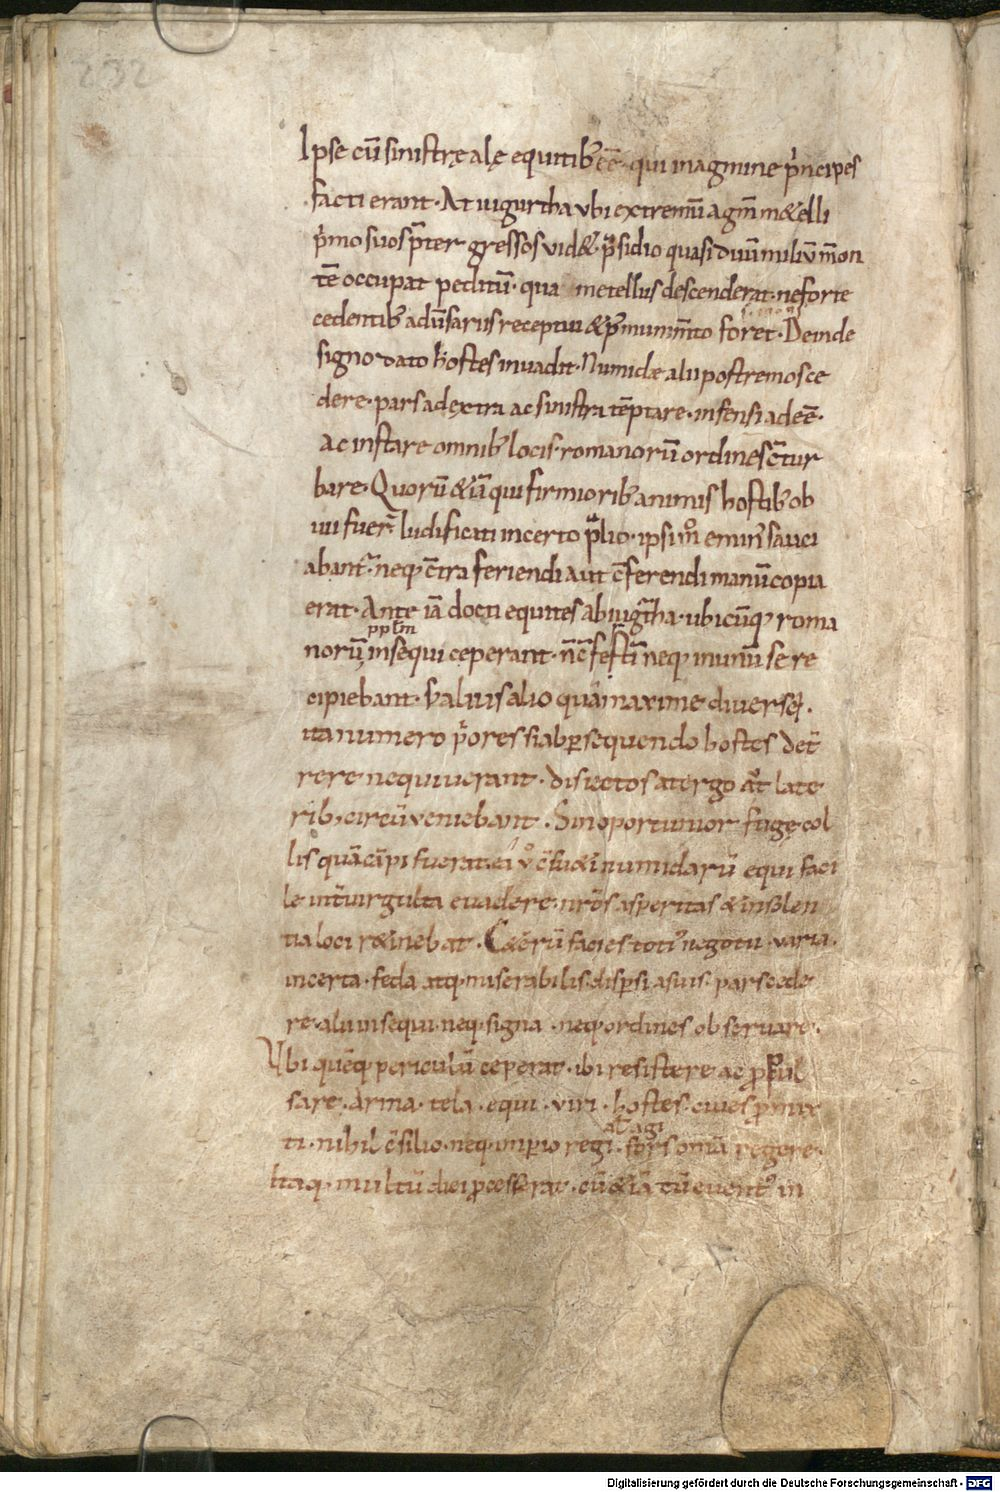 232
Ipse cū sinistrę alę equitib; ēē. qui in agmine p̍ncipes
facti erant. At iugurtha ubi extremū agm̄ m&elli
p̍mo suos p̄ter gressos vid&. p̄sidio quasi duū miliū mon
tē occupat peditū. qua metellus descenderat. ne forte
cedentib; adūsariis receptui & p̄ munim̄to foret. Deinde
signo dato hostes inuadit. Numidæ alii postremos ce
dere. pars a dęxtra ac sinistra tēptare. infensi adeē.
ac instare omnib; locis. romanorū ordines c̄tur
bare. Quorū &iā qui firmiorib; animis hostib; ob
uii fuer̄ ludificati incerto p̄lio. ipsi m̊ emin̄ sauci
abant̄. neq; c̄tra feriendi aut c̄ferendi manū copia
erat. Ante iā docti equites ab iugr̄tha. ubicūq; roma
norū insequi ceperant. n̄ c̄fęstī neq; in unū se re
cipiebant. s̄ alius alio quā maxime diuersę.
ita numero p̍ores si ab p̱sequendo hostes det̄
rere nequiuerant. disiectos a tergo aūt late
rib; circūveniebant. Sin oportunior fugę col
lis quā cāpi fuerat. ei v̊ c̄su&i numidarū equi faci
le int̄ uirgulta euadere. nr̄os asperitas & insolen
tia loci r&inebat. C&erū facies toti᾽ negotii. varia.
incerta. feda atq; miserabilis. disp̱si a suis. pars cede
re. alii insequi. neq; signa. neq; ordines obseruare.
Vbi quēq; periculū ceperat. ibi resistere ac propul
sare. Arma. tela. equi. viri. hostes. ciues p̱mix
ti. nihil c̄silio. neq; imp̱io regi. fors omīa regere.
Itaq; multū diei p̱cesserat. cū &iā tū euent᾽ in